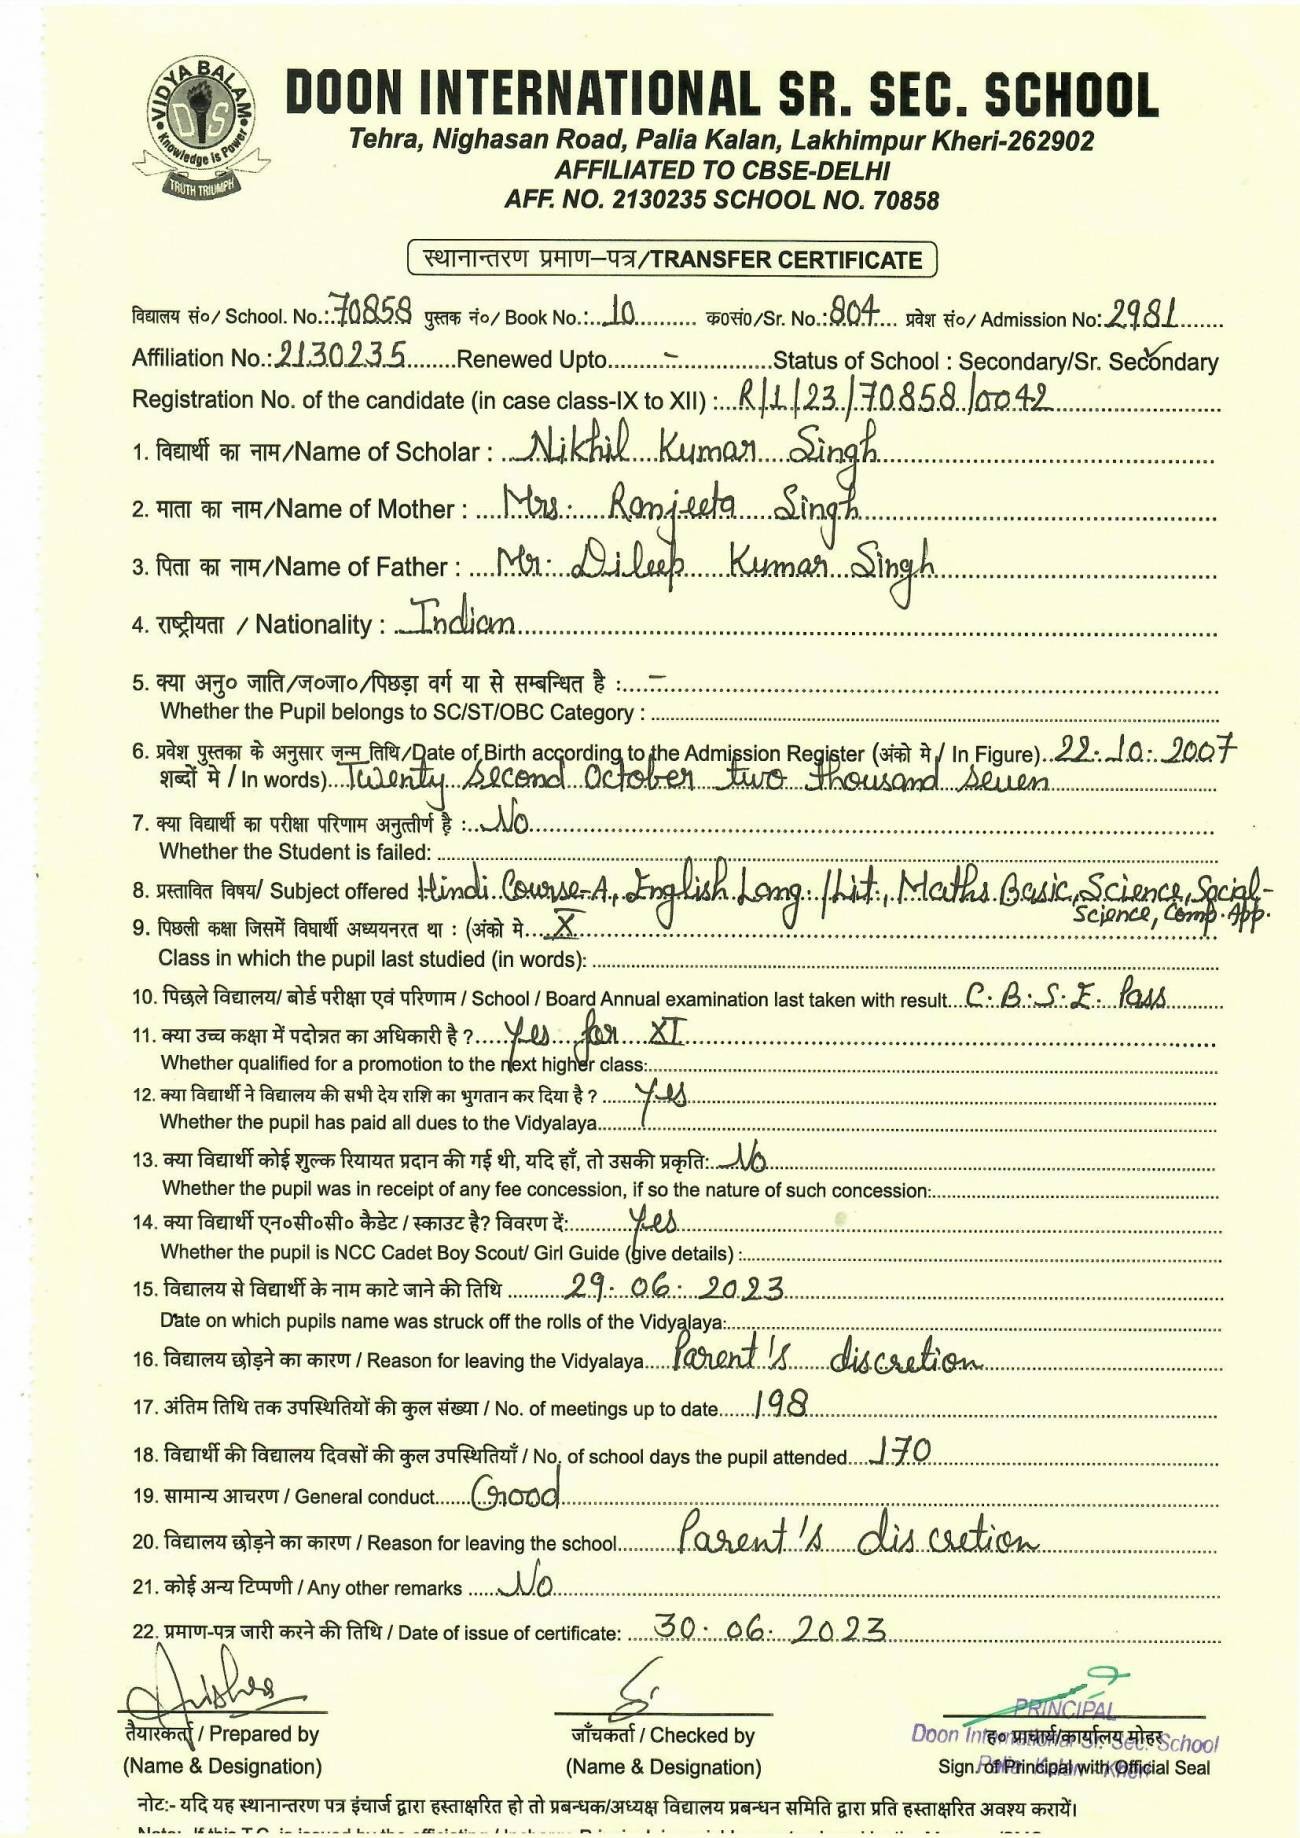 VIDYA BALAM
DIS
Knowledge is Power
TRUTH TRIUMPH
DOON INTERNATIONAL SR. SEC. SCHOOL
Tehra, Nighasan Road, Palia Kalan, Lakhimpur Kheri-262902
AFFILIATED TO CBSE-DELHI
AFF. NO. 2130235 SCHOOL NO. 70858
स्थानान्तरण प्रमाण–पत्र/TRANSFER CERTIFICATE
विद्यालय सं०/ School. No.:.70858 पुस्तक नं०/ Book No.:...10........... क०सं०/Sr. No.:804.... प्रवेश सं०/ Admission No:2981.......
Affiliation No.:2130235........Renewed Upto........-...............Status of School : Secondary/Sr. Secondary
Registration No. of the candidate (in case class-IX to XII) :...R/1/23/70858/0042
1. विद्यार्थी का नाम/Name of Scholar : ...Nikhil Kumar Singh
2. माता का नाम/Name of Mother : ....Mrs. Ranjeeta Singh
3. पिता का नाम/Name of Father : ....Mr. Dileep Kumar Singh
4. राष्ट्रीयता / Nationality : ...Indian
5. क्या अनु० जाति/ज०जा०/पिछड़ा वर्ग या से सम्बन्धित है :....-
Whether the Pupil belongs to SC/ST/OBC Category :
6. प्रवेश पुस्तका के अनुसार जन्म तिथि/Date of Birth according to the Admission Register (अंको मे / In Figure)..22.10.2007
शब्दों मे / In words)...Twenty second October two thousand seven
7. क्या विद्यार्थी का परीक्षा परिणाम अनुत्तीर्ण है :...No
Whether the Student is failed:
8. प्रस्तावित विषय/ Subject offered Hindi Course-A, English Lang./Lit., Maths Basic, Science, Social-
Science, Comp. App.
9. पिछली कक्षा जिसमें विद्यार्थी अध्ययनरत था : (अंको मे....X
Class in which the pupil last studied (in words):
10. पिछले विद्यालय/ बोर्ड परीक्षा एवं परिणाम / School / Board Annual examination last taken with result...C.B.S.E. Pass
11. क्या उच्च कक्षा में पदोन्नत का अधिकारी है ?.....Yes for XI
Whether qualified for a promotion to the next higher class:
12. क्या विद्यार्थी ने विद्यालय की सभी देय राशि का भुगतान कर दिया है ? ......Yes
Whether the pupil has paid all dues to the Vidyalaya
13. क्या विद्यार्थी कोई शुल्क रियायत प्रदान की गई थी, यदि हाँ, तो उसकी प्रकृति:...No
Whether the pupil was in receipt of any fee concession, if so the nature of such concession:
14. क्या विद्यार्थी एन०सी०सी० कैडेट / स्काउट है? विवरण दें:..........Yes
Whether the pupil is NCC Cadet Boy Scout/ Girl Guide (give details) :
15. विद्यालय से विद्यार्थी के नाम काटे जाने की तिथि ..........29.06.2023
Date on which pupils name was struck off the rolls of the Vidyalaya:
16. विद्यालय छोड़ने का कारण / Reason for leaving the Vidyalaya.....Parent's discretion
17. अंतिम तिथि तक उपस्थितियों की कुल संख्या / No. of meetings up to date......198
18. विद्यार्थी की विद्यालय दिवसों की कुल उपस्थितियाँ / No. of school days the pupil attended....170
19. सामान्य आचरण / General conduct......Good
20. विद्यालय छोड़ने का कारण / Reason for leaving the school..........Parent's discretion
21. कोई अन्य टिप्पणी / Any other remarks ......No
22. प्रमाण-पत्र जारी करने की तिथि / Date of issue of certificate: ....30.06.2023
PRINCIPAL
Doon International Sr. Sec. School
Palia Kalan - Kheri
तैयारकर्ता / Prepared by जाँचकर्ता / Checked by ह० प्राचार्य/कार्यालय मोहर
(Name & Designation) (Name & Designation) Sign. of Principal with Official Seal
नोट:- यदि यह स्थानान्तरण पत्र इंचार्ज द्वारा हस्ताक्षरित हो तो प्रबन्धक/अध्यक्ष विद्यालय प्रबन्धन समिति द्वारा प्रति हस्ताक्षरित अवश्य करायें।